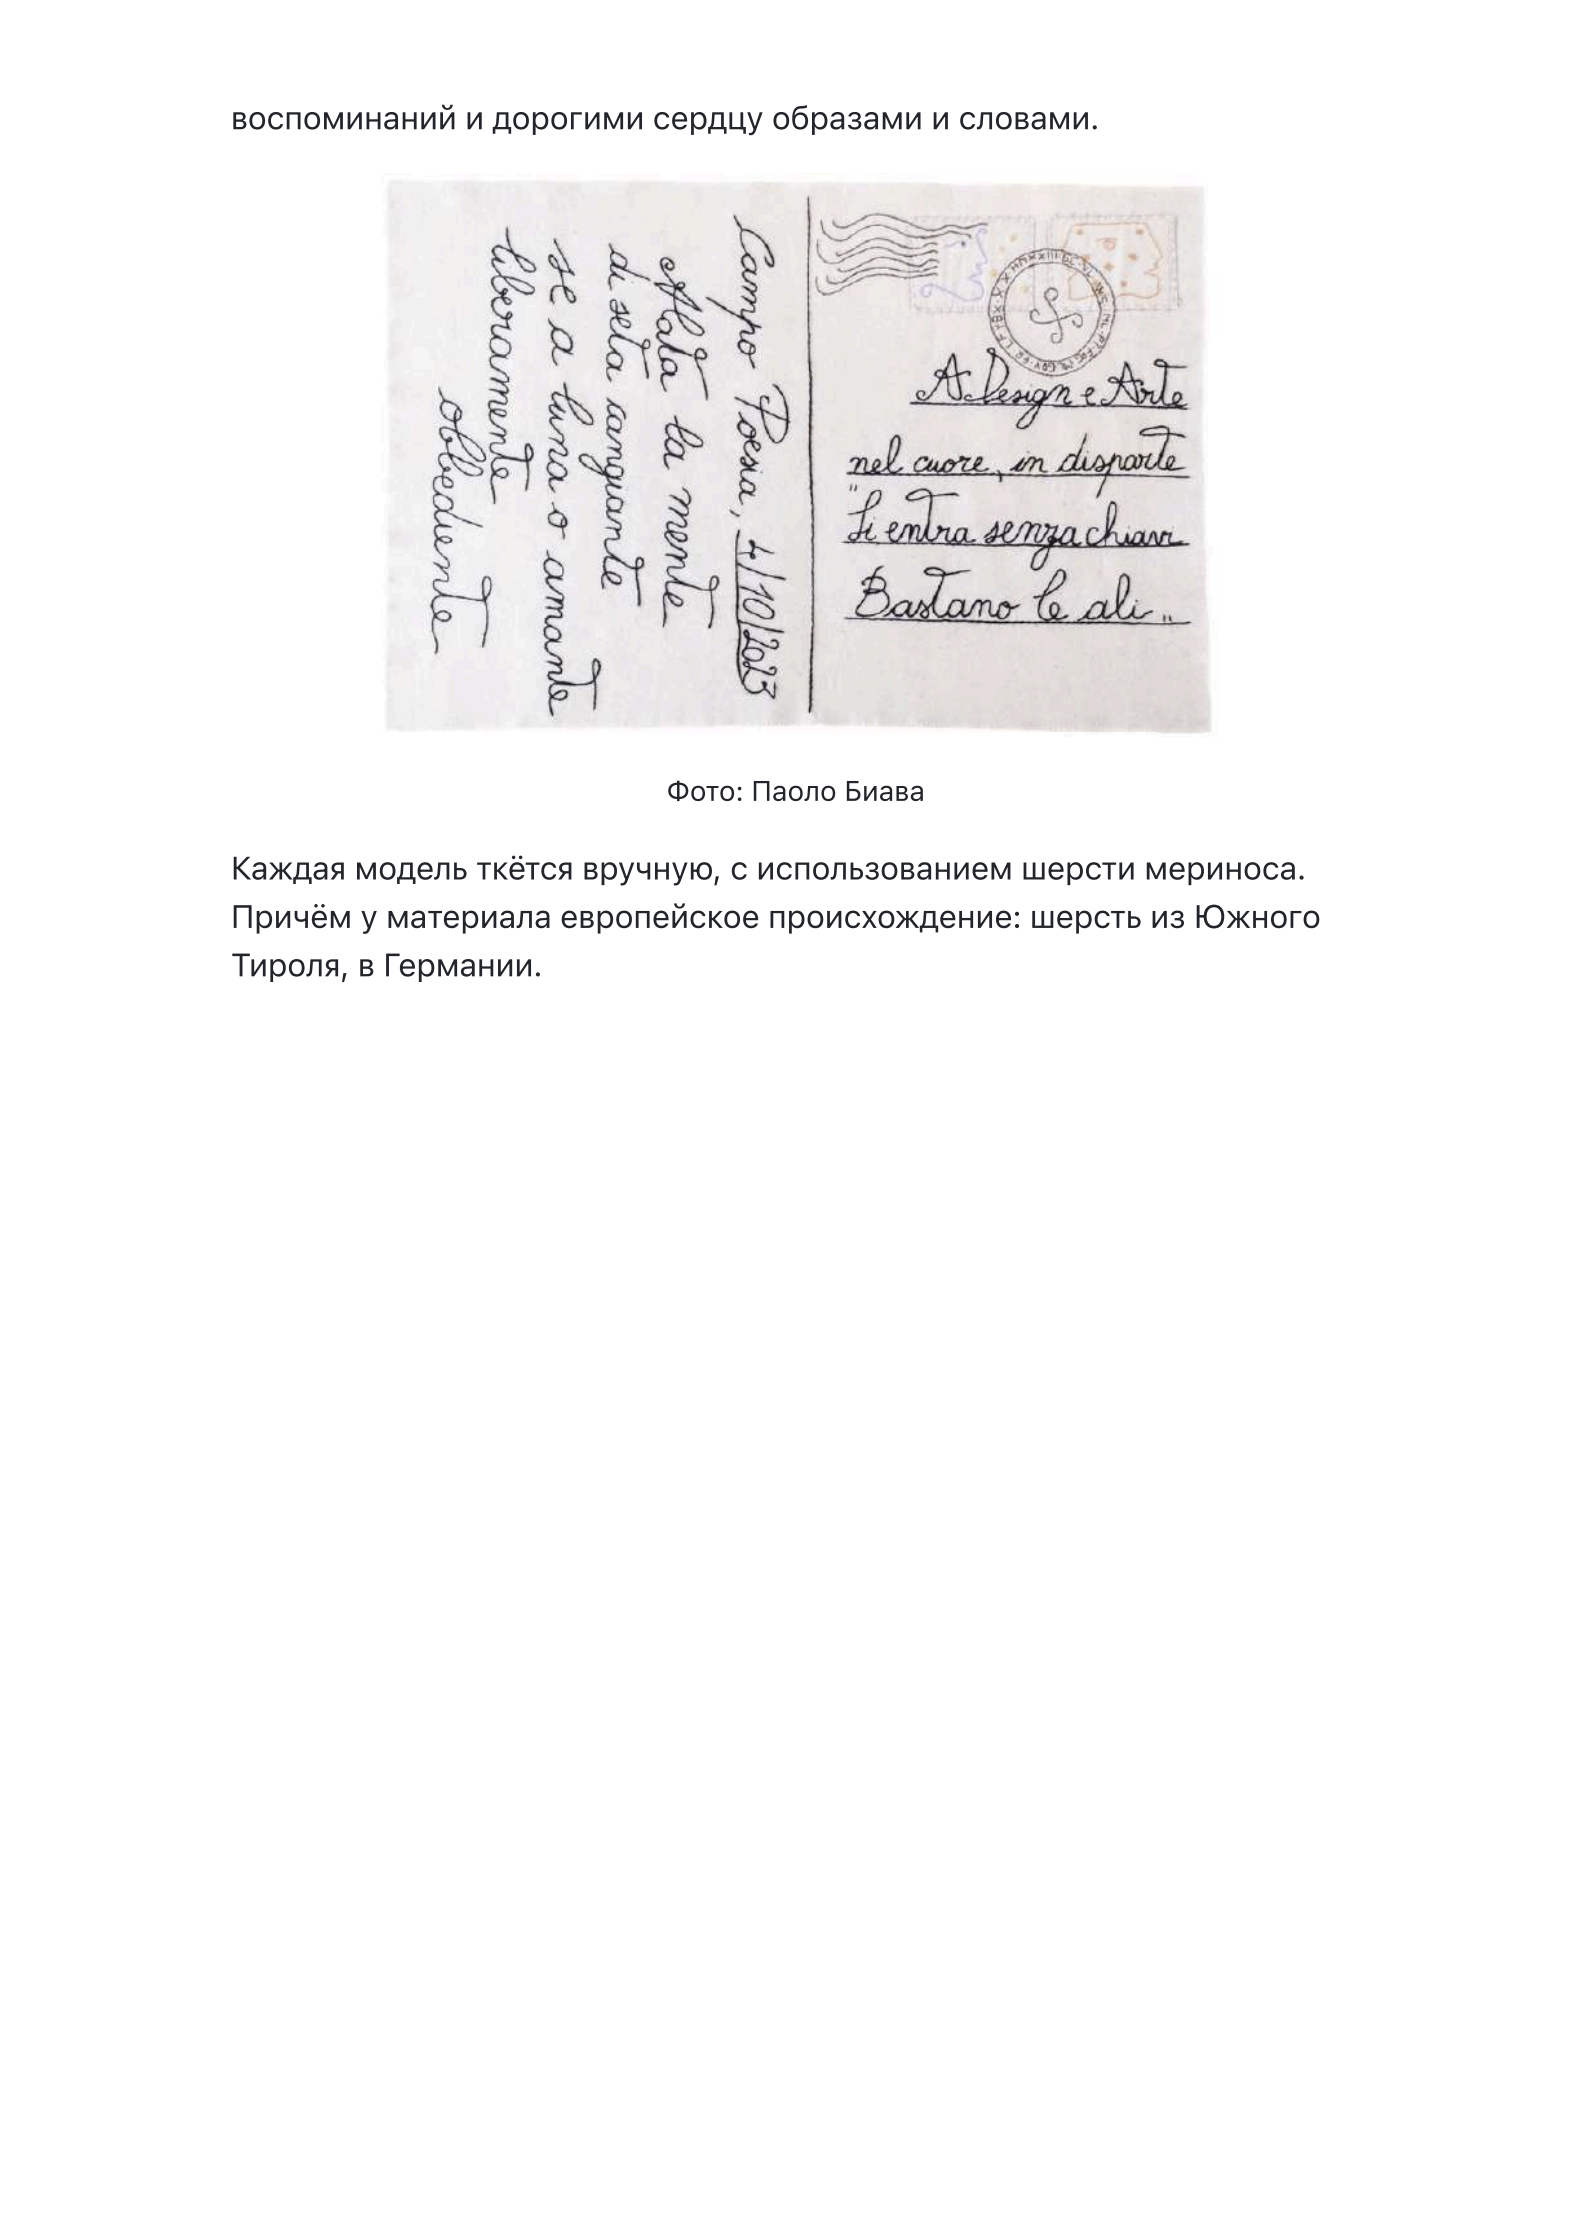 воспоминаний и дорогими сердцу образами и словами.
Campo Poesia, 4/10/2023
Alata la mente
di seta cangiante
se a luna o amante
liberamente
obbediente
A Design e Arte
nel cuore, in disparte
"Si entra senza chiavi
Bastano le ali"
Фото: Паоло Биава
Каждая модель ткётся вручную, с использованием шерсти мериноса.
Причём у материала европейское происхождение: шерсть из Южного
Тироля, в Германии.